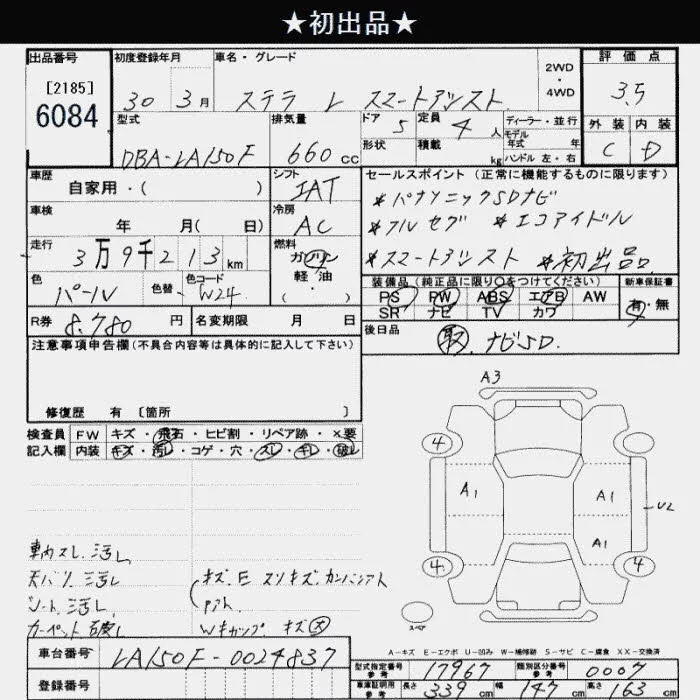 ★初出品★
出品番号 初度登録年月 車名・グレード 2WD・4WD 評価点
[2185]
6084
30 3月 ステラ L スマートアシスト 3.5
型式 排気量 ドア 5 定員 4人 ディーラー・並行 外装 内装
形状 積載 kg モデル年式 年 ハンドル 左・右
DBA-LA150F 660cc C D
車歴 シフト セールスポイント (正常に機能するものに限ります)
自家用・( ) IAT
※パナソニックSDナビ
車検 冷房
年 月( 日) AC ※フルセグ ※エコアイドル
走行 燃料
3万9千213km ガソリン・軽油・( ) ※スマートアシスト ※初出品
色 色替 色コード
パール W24
装備品 (純正品に限り○をつけてください) 新車保証書
PS PW ABS エアB AW 有・無
SR ナビ TV カワ
R券 8,780円 名変期限 月 日
後日品 取 ナビSD.
注意事項申告欄(不具合内容等は具体的に記入して下さい)
修復歴 有 〔箇所 〕
検査員 FW キズ・飛石・ヒビ割・リペア跡・×要
記入欄 内装 キズ・汚レ・コゲ・穴・スレ・キレ・破レ
A3
4
A1 A1 U2
A1
4 4
スペア
車内スレ.汚レ
天バリ.汚レ
シート.汚レ
カーペット破レ
Wキャップ キズ大
A-キズ E-エクボ U-凹み W-補修跡 S-サビ C-腐食 XX-交換済
車台番号 LA150F-0024837
登録番号
型式指定番号 参考 17967 類別区分番号 参考 0007
車庫証明用 参考 長さ 339cm 幅 147cm 高さ 63cm